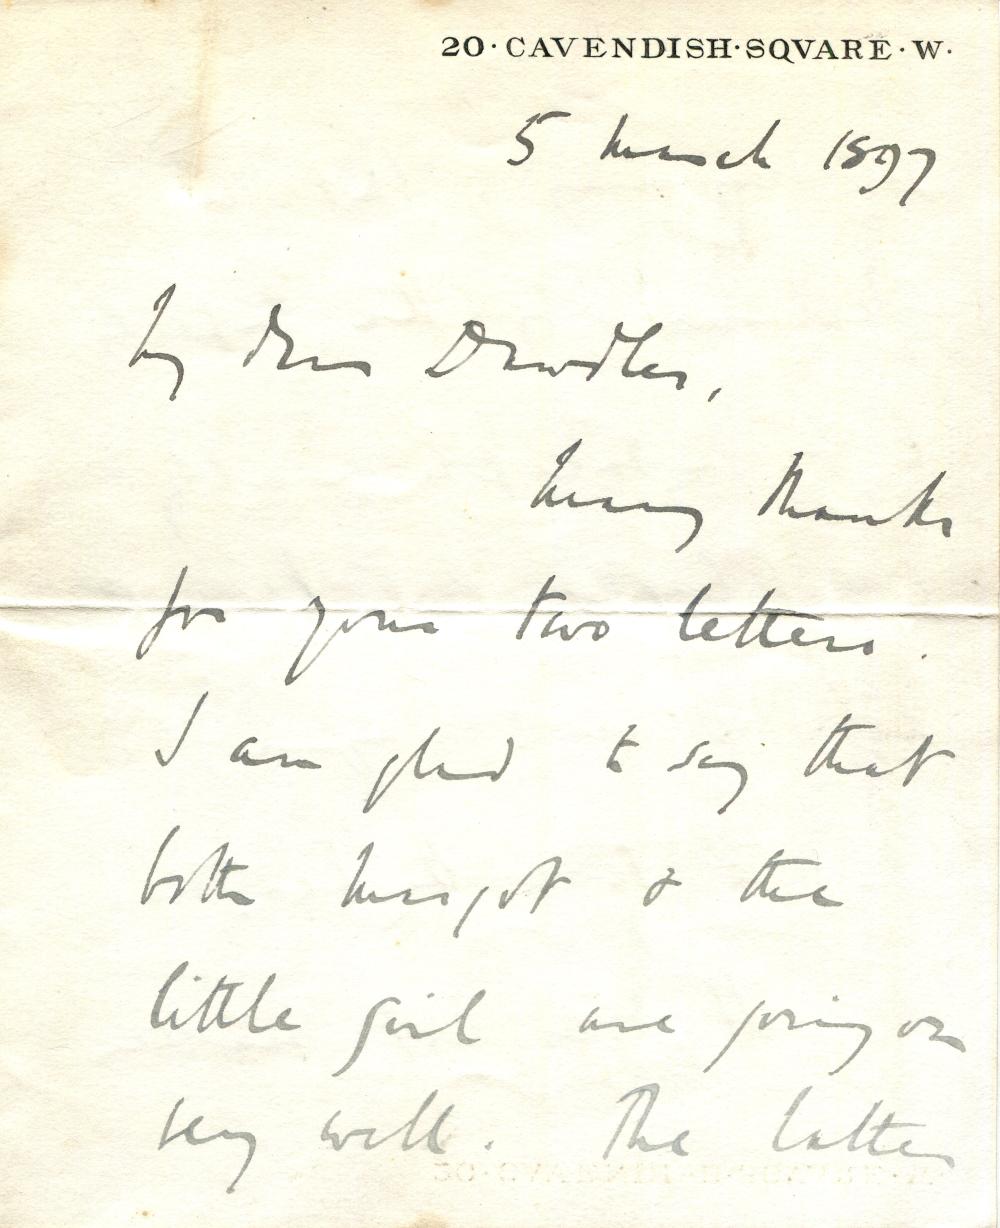 20·CAVENDISH·SQVARE·W·
5 March 1897
My dear Dawdler,
Many thanks
for your two letters.
I am glad to say that
both Margot & the
little girl are going on
very well. The latter